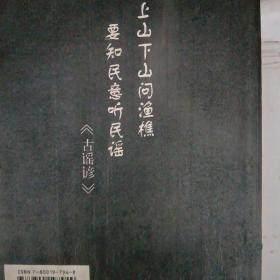 上山下山问渔樵
要知民意听民谣
《古谣谚》
ISBN 7-80019-794-8